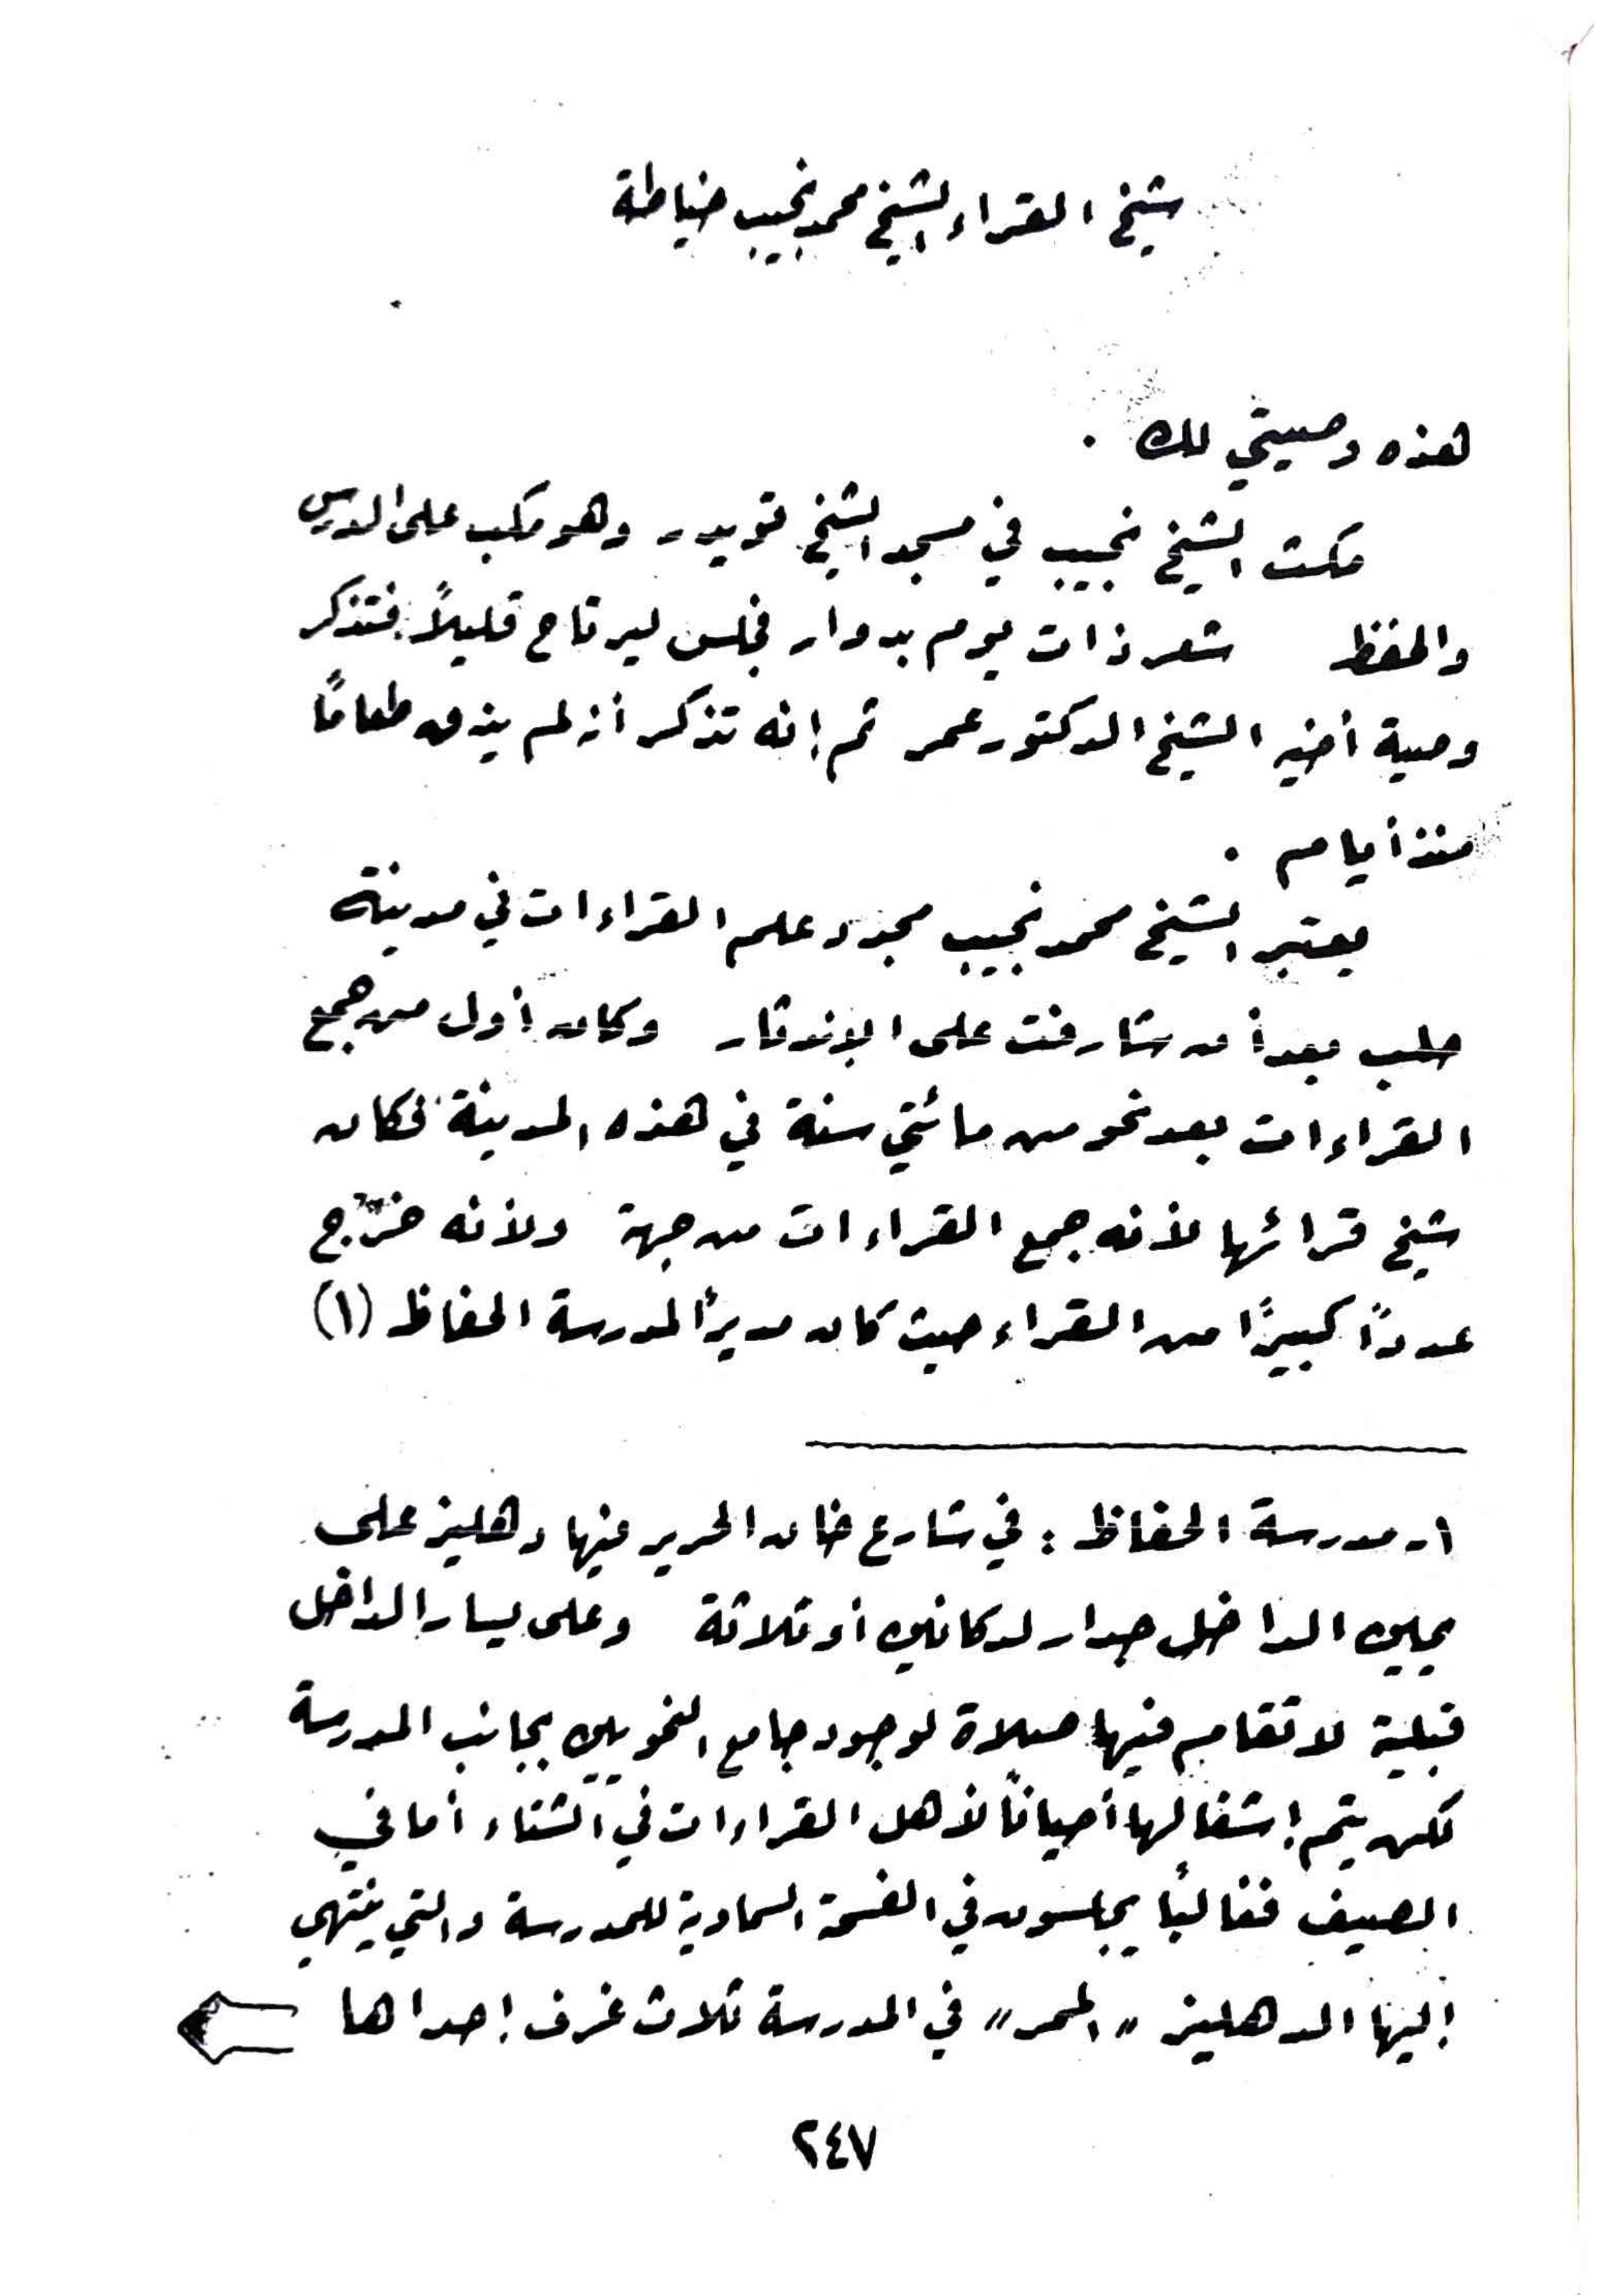 شيخ القراء الشيخ محمد نجيب خياطة
هذه وصيتي لك .
مكث الشيخ نجيب في مسجد الشيخ وهو مكب على الدرس
والحفظ شعر ذات يوم بدوار فجلس ليرتاح قليلاً فتذكر
وصية أخيه الشيخ الدكتور عمر ثم إنه تذكر أنه لم يذق طعامًا
منذ أيام .
يعتبر الشيخ محمد نجيب مجدد علم القراءات في مدينة
حلب بعد أن شارفت على الإندثار وكان أول من جمع
القراءات بعد نحو من مائتي سنة في هذه المدينة فكان
شيخ قرائها لأنه جمع القراءات من جهة ولأنه خرّج
عددًا كبيرًا من القراء حيث كان مديرًا لمدرسة الحفاظ (١)
١- مدرسة الحفاظ : في شارع خان الحرير فيها دهليز على
يمين الداخل جدار لدكانين أو ثلاثة وعلى يسار الداخل
قبلية لا تقام فيها صلاة لوجود جامع النحويين بجانب المدرسة
لكن يتم إشغالها أحيانًا لأهل القراءات في الشتاء أما في
الصيف فغالبًا يجلسون في الفسحة السماوية للمدرسة والتي ينتهي
إليها الدهليز " الممر " في المدرسة ثلاث غرف إحداها
٢٤٧